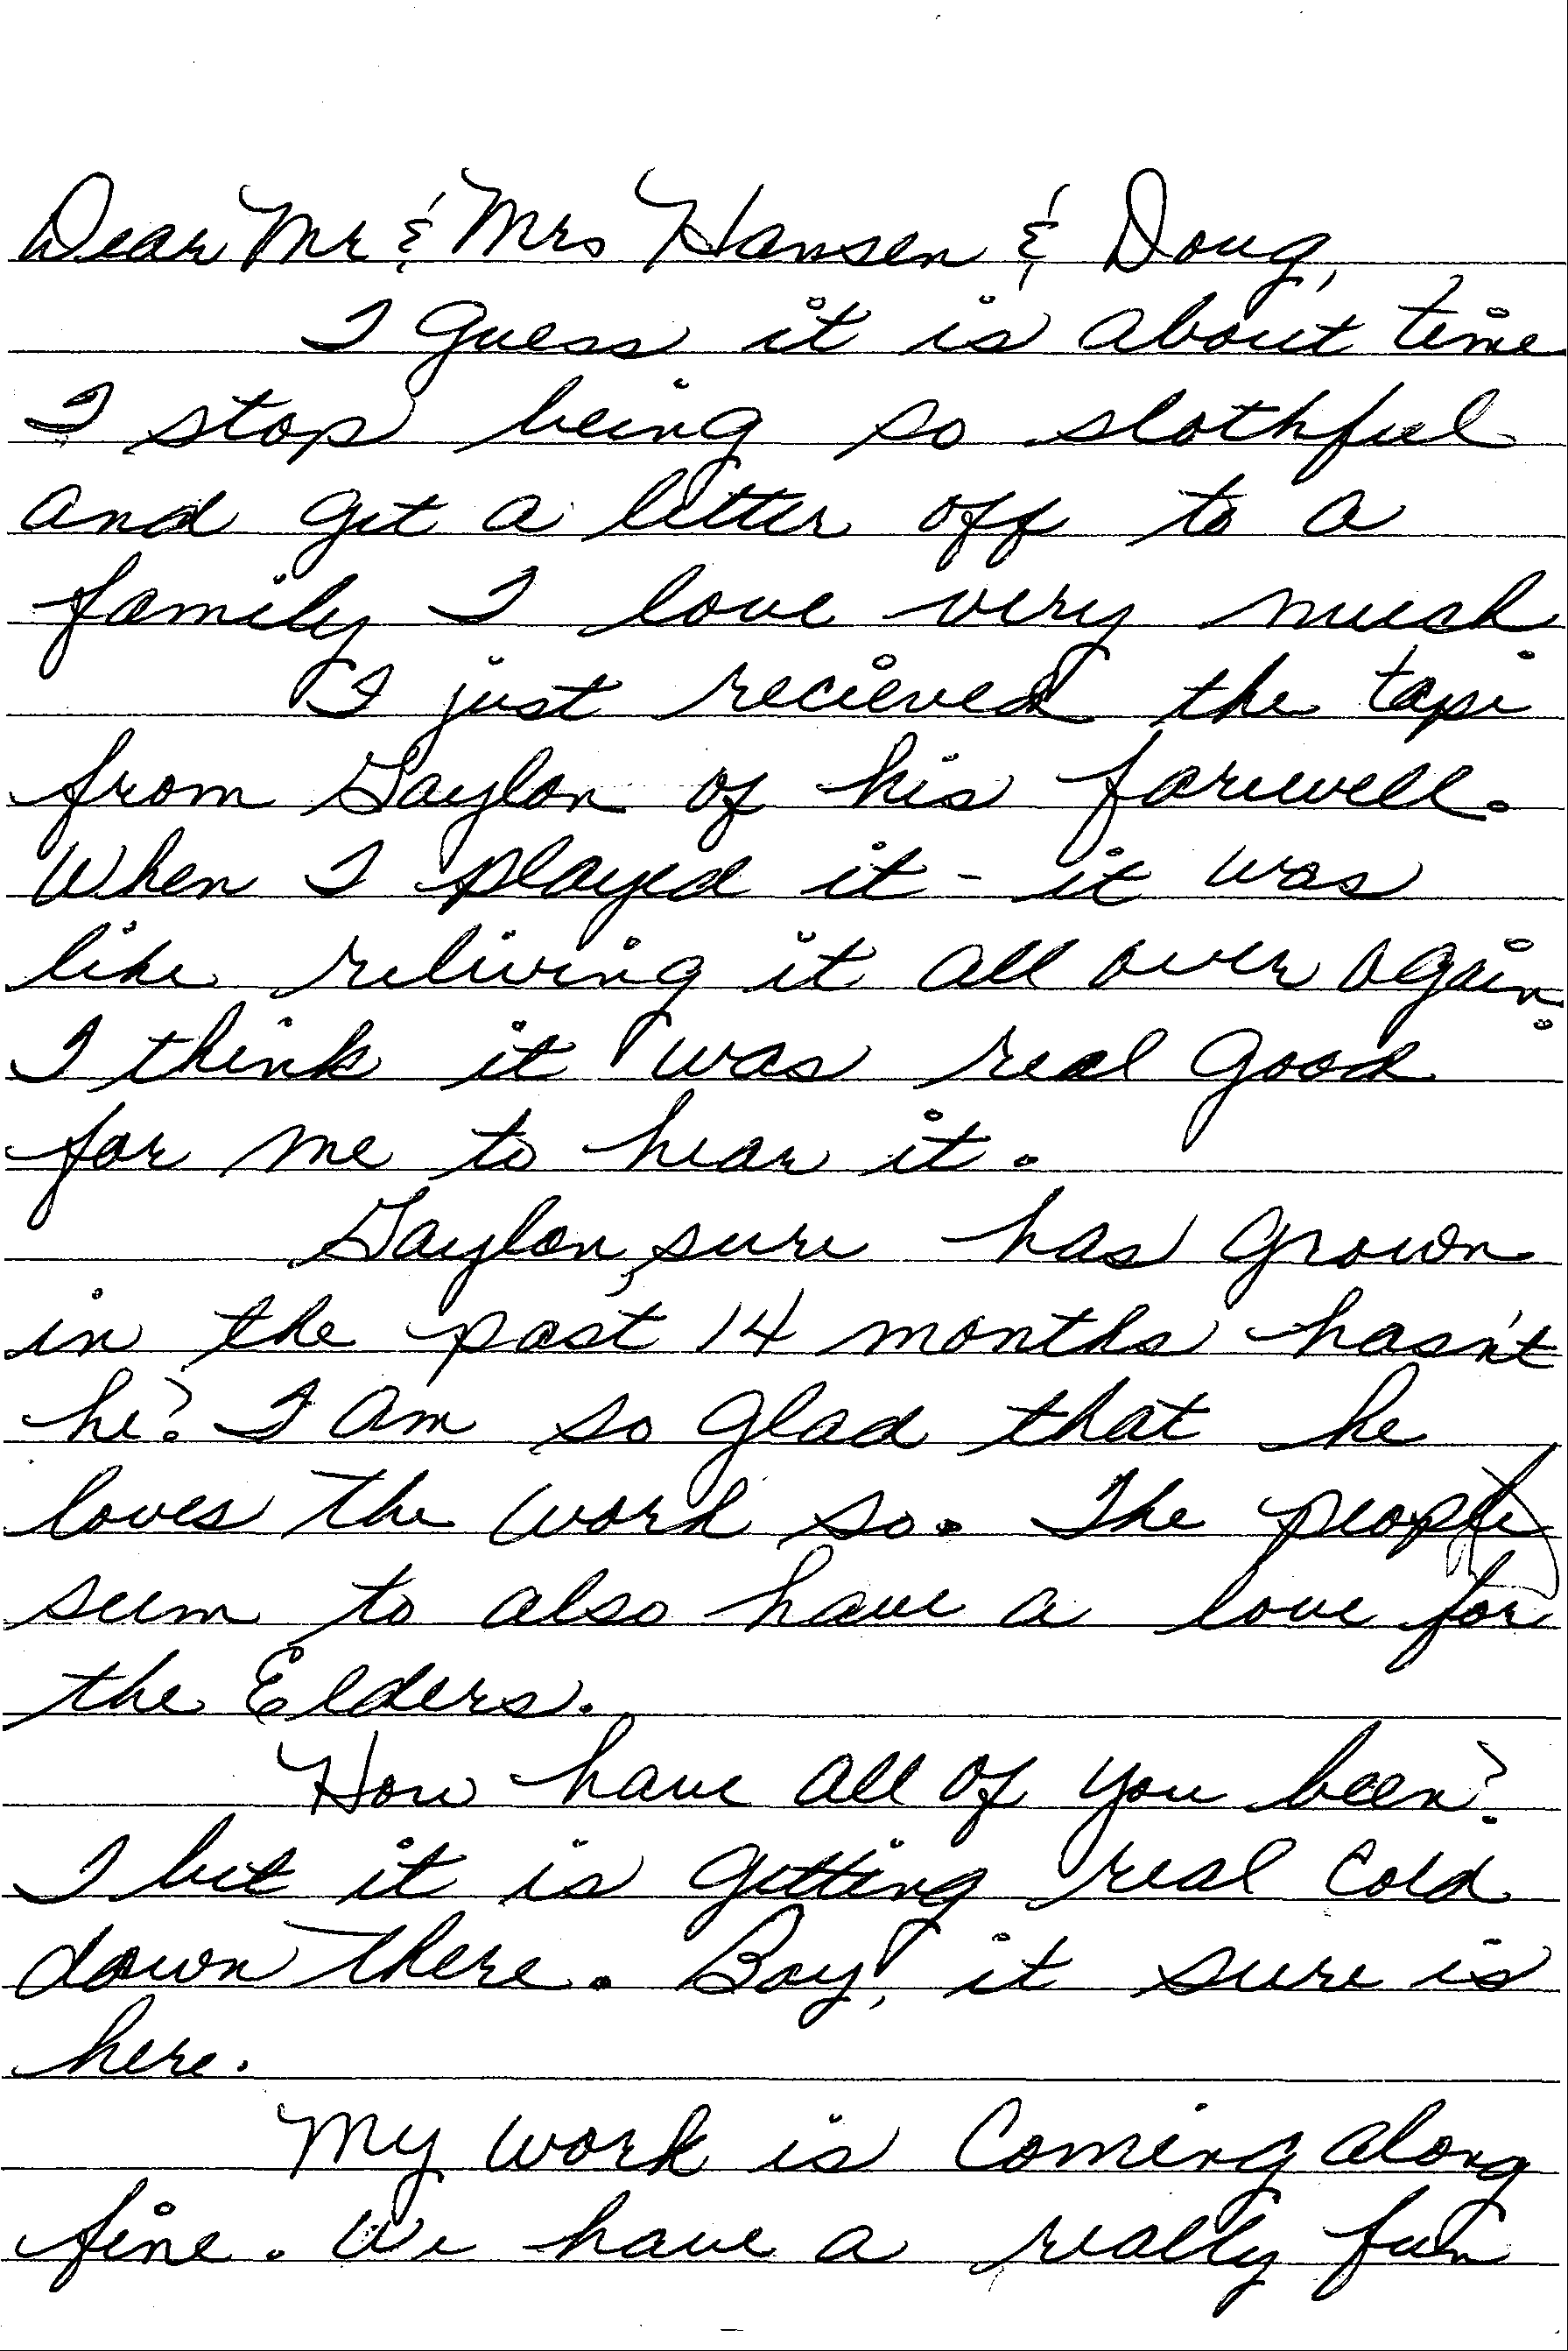 Dear Mr & Mrs Hansen & Doug,
I guess it is about time
I stop being so slothful
and get a letter off to a
family I love very much.
I just recieved the tape
from Gaylon of his farewell.
When I played it - it was
like reliving it all over again.
I think it was real good
for me to hear it.
Gaylon, sure has grown
in the past 14 months hasn't
he? I am so glad that he
loves the work so. The people
seem to also have a love for
the Elders.
How have all of you been?
I bet it is getting real cold
down there. Boy, it sure is
here.
My work is coming along
fine. We have a really fun